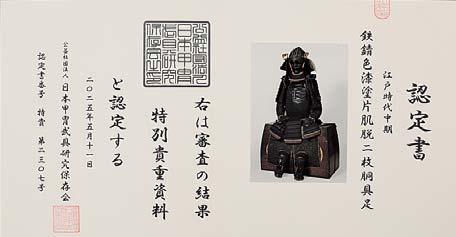 認定書
江戸時代中期
鉄錆色漆塗片肌脱二枚胴具足
右は審査の結果
特別貴重資料
と認定する
二〇二五年五月十一日
公益社団法人 日本甲冑武具研究保存会
認定書番号 特貴 第二三〇七号